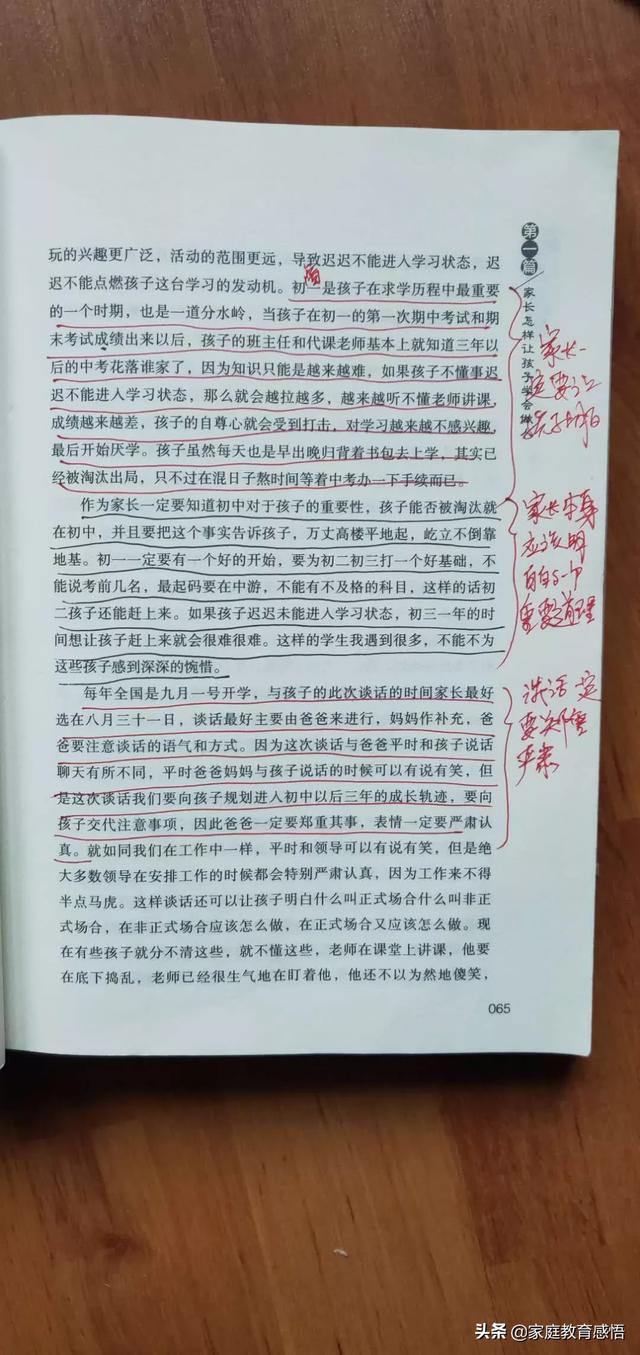 玩的兴趣更广泛，活动的范围更远，导致迟迟不能进入学习状态，迟
迟不能点燃孩子这台学习的发动机。初一是孩子在求学历程中最重要
的一个时期，也是一道分水岭，当孩子在初一的第一次期中考试和期
末考试成绩出来以后，孩子的班主任和代课老师基本上就知道三年以
后的中考花落谁家了，因为知识只能是越来越难，如果孩子不懂事迟
迟不能进入学习状态，那么就会越拉越多，越来越听不懂老师讲课，
成绩越来越差，孩子的自尊心就会受到打击，对学习越来越不感兴趣，
最后开始厌学。孩子虽然每天也是早出晚归背着书包去上学，其实已
经被淘汰出局，只不过在混日子熬时间等着中考办一下手续而已。
作为家长一定要知道初中对于孩子的重要性，孩子能否被淘汰就
在初中，并且要把这个事实告诉孩子，万丈高楼平地起，屹立不倒靠
地基。初一一定要有一个好的开始，要为初二初三打一个好基础，不
能说考前几名，最起码要在中游，不能有不及格的科目，这样的话初
二孩子还能赶上来。如果孩子迟迟未能进入学习状态，初三一年的时
间想让孩子赶上来就会很难很难。这样的学生我遇到很多，不能不为
这些孩子感到深深的惋惜。
每年全国是九月一号开学，与孩子的此次谈话的时间家长最好
选在八月三十一日，谈话最好主要由爸爸来进行，妈妈作补充，爸
爸要注意谈话的语气和方式。因为这次谈话与爸爸平时和孩子说话
聊天有所不同，平时爸爸妈妈与孩子说话的时候可以有说有笑，但
是这次谈话我们要向孩子规划进入初中以后三年的成长轨迹，要向
孩子交代注意事项，因此爸爸一定要郑重其事，表情一定要严肃认
真。就如同我们在工作中一样，平时和领导可以有说有笑，但是绝
大多数领导在安排工作的时候都会特别严肃认真，因为工作来不得
半点马虎。这样谈话还可以让孩子明白什么叫正式场合什么叫非正
式场合，在非正式场合应该怎么做，在正式场合又应该怎么做。现
在有些孩子就分不清这些，就不懂这些，老师在课堂上讲课，他要
在底下捣乱，老师已经很生气地在盯着他，他还不以为然地傻笑，
065
第一篇
家长怎样让孩子学会做
家长一
定要让
孩子明白
家长本身
应该明
白这一个
重要道理
谈话一定
要郑重
严肃
头条 @家庭教育感悟